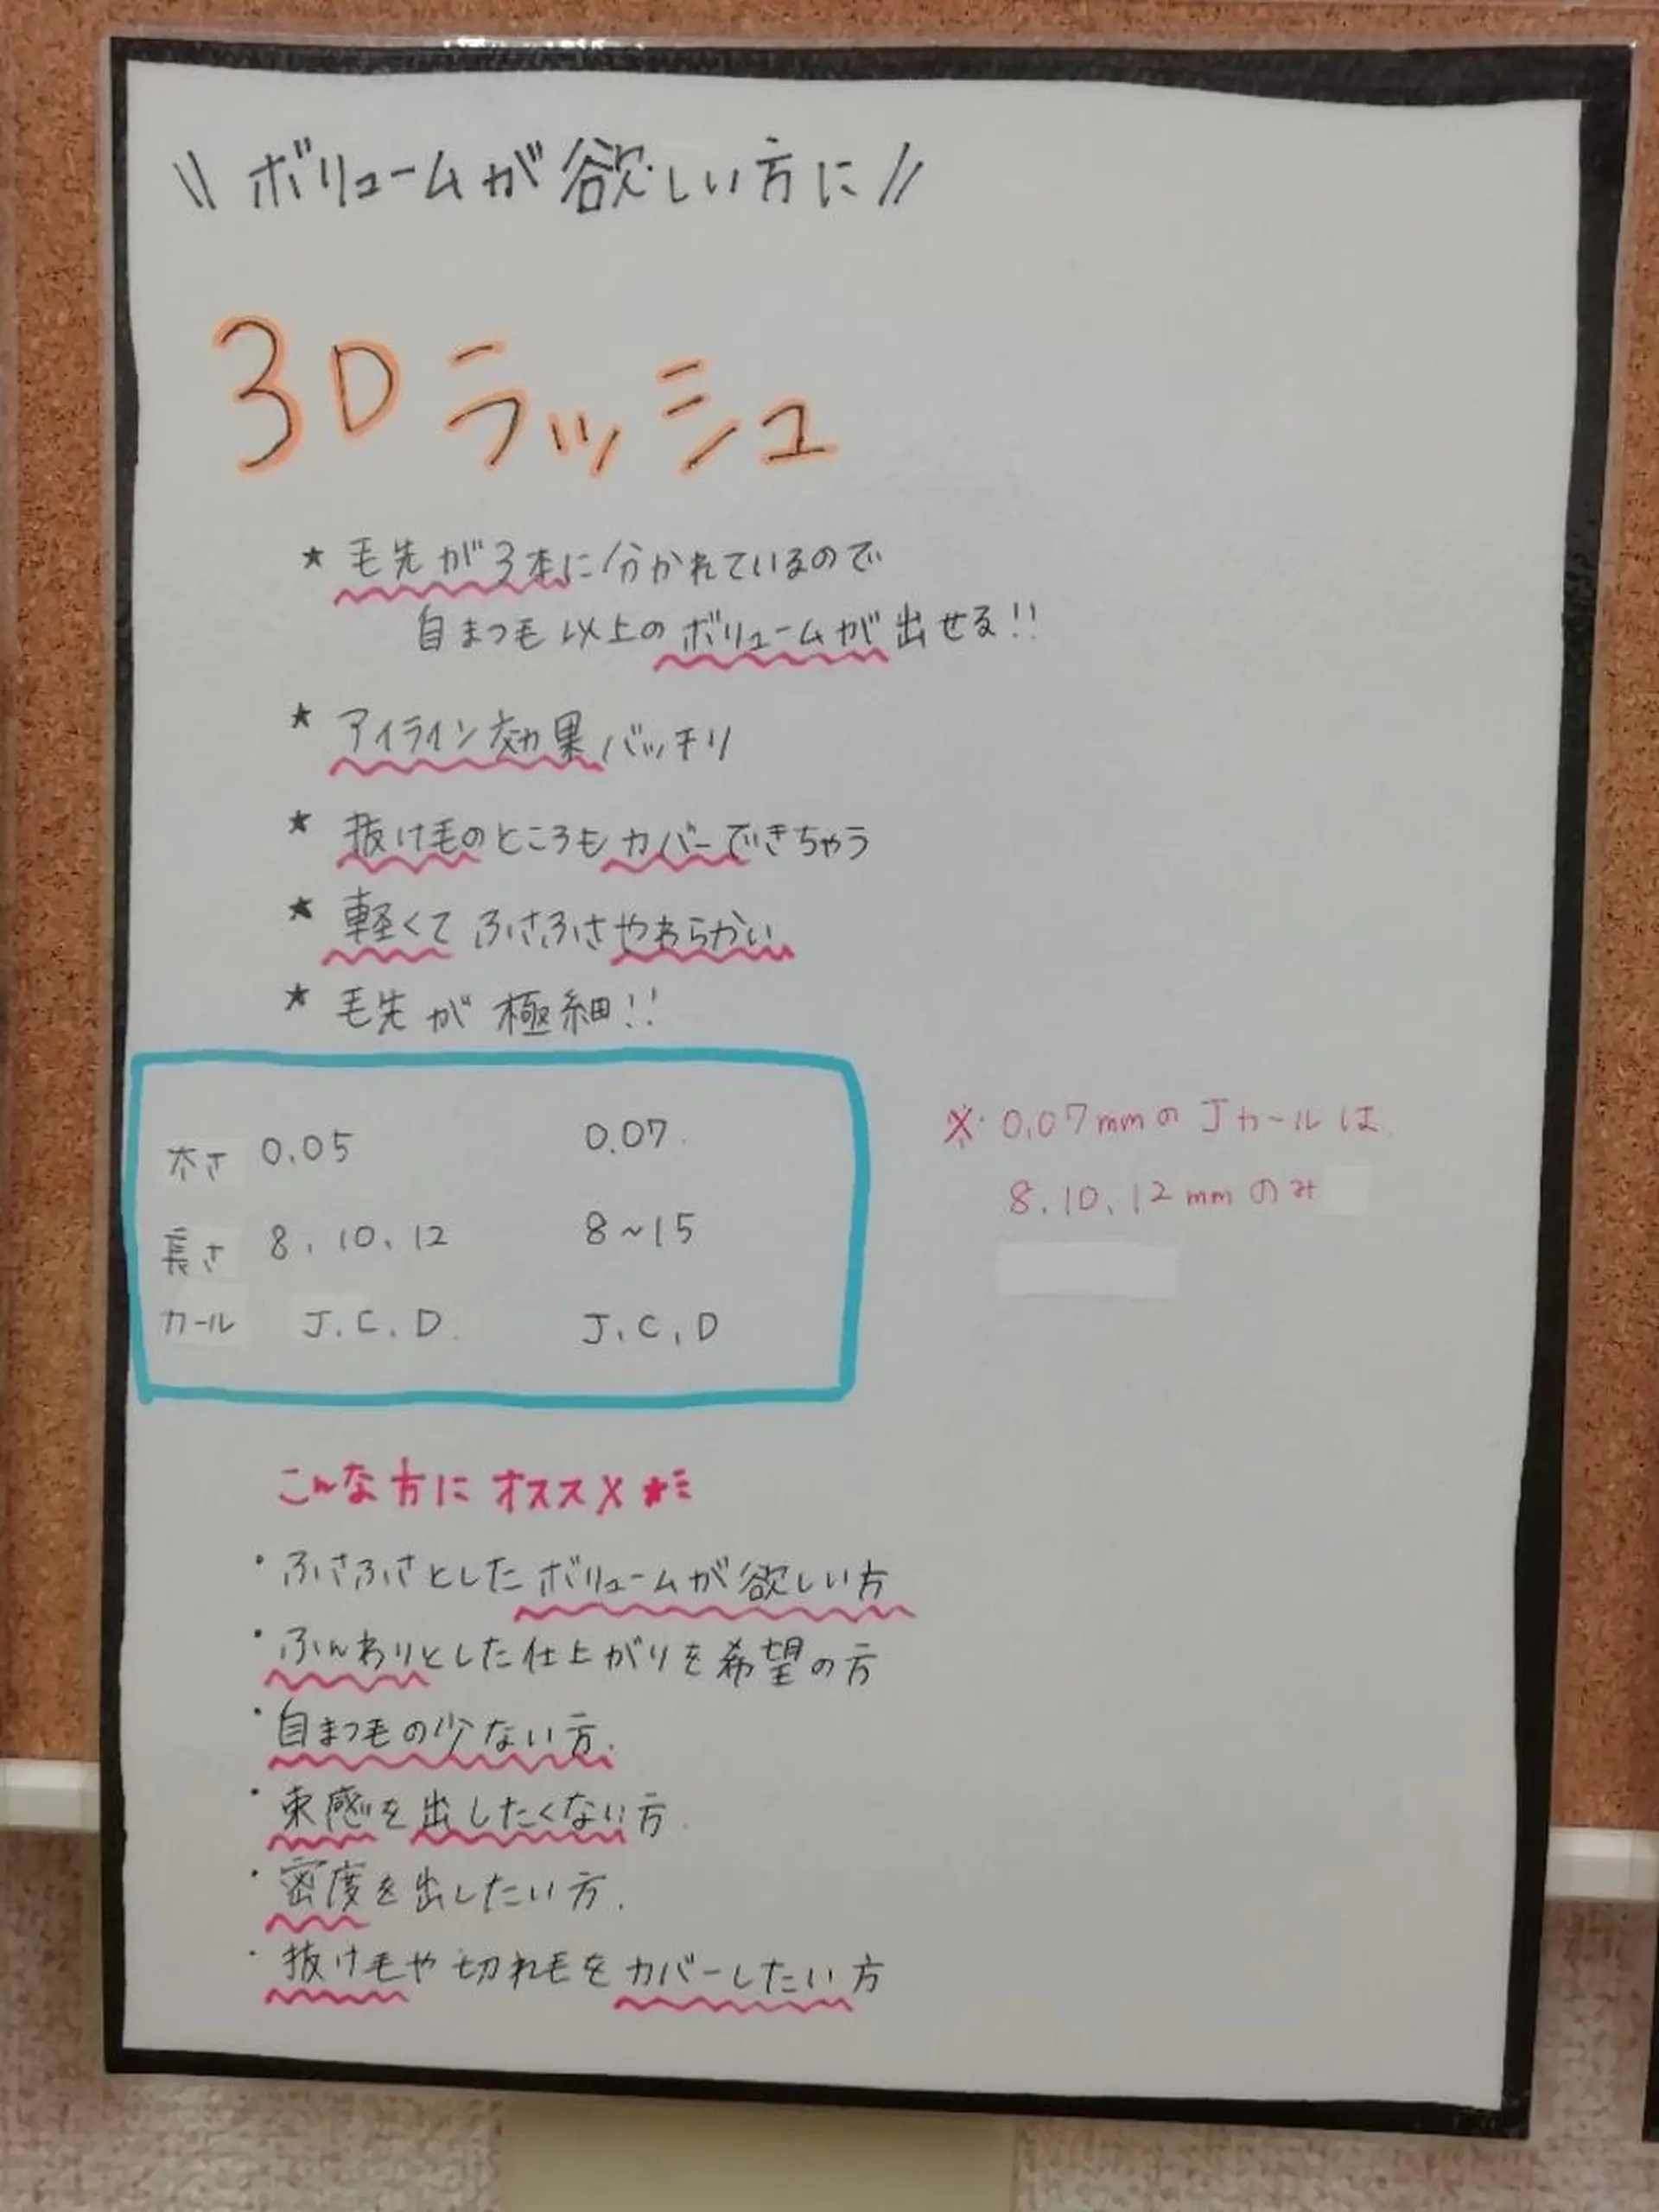 \\ ボリュームが欲しい方に //
3Dラッシュ
★ 毛先が3本に分かれているので
自まつ毛以上のボリュームが出せる!!
★ アイライン効果バッチリ
★ 抜け毛のところもカバーできちゃう
★ 軽くてふさふさやわらかい
★ 毛先が極細!!
太さ 0.05 0.07
長さ 8, 10, 12 8~15
カール J.C.D. J.C.D
※ 0.07mmのJカールは
8.10.12mmのみ
こんな方にオススメ★ミ
・ふさふさとしたボリュームが欲しい方
・ふんわりとした仕上がりを希望の方
・自まつ毛の少ない方.
・束感を出したくない方.
・密度を出したい方.
・抜け毛や切れ毛をカバーしたい方